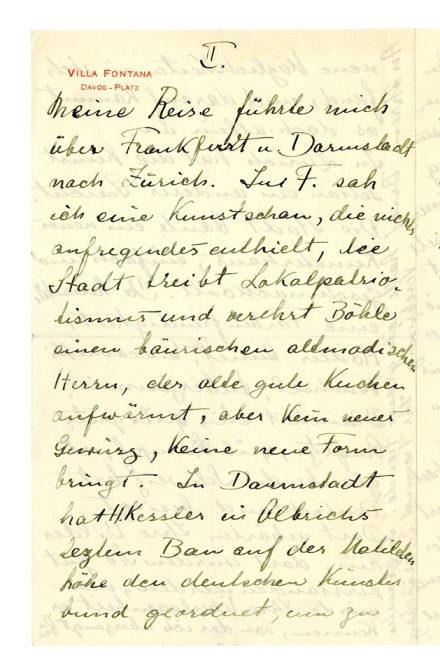 II.
VILLA FONTANA
DAVOS-PLATZ
Meine Reise führte mich
über Frankfurt u. Darmstadt
nach Zürich. In F. sah
ich eine Kunstschau, die nichts
aufregendes enthielt, die
Stadt treibt Lokalpatrio-
tismus und verehrt Böhle
einen bäurischen altmodischen
Herrn, der alte gute Kuchen
aufwärmt, aber kein neues
Gewürz, keine neue Form
bringt. In Darmstadt
hat H. Kessler in Olbrichs
leztem Bau auf der Matilden
höhe den deutschen Künstler
bund geordnet, um zu